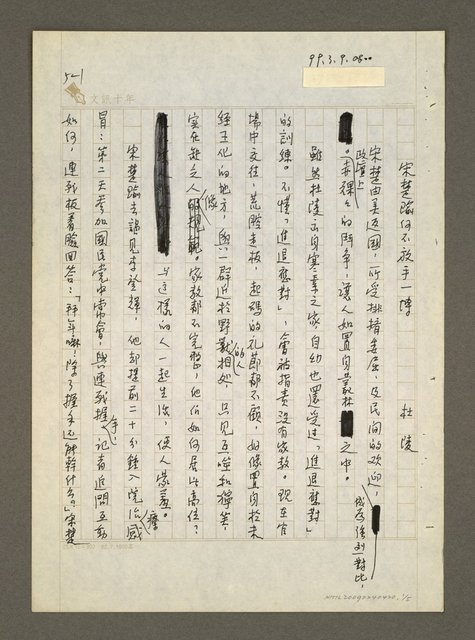 99.3.9.0800
5-1
文訊十年
宋楚瑜何不放手一博
杜陵
宋楚由美返國,所受排擠委屈,及民間的歡迎,成為強烈對比,
政壇上。赤裸裸的鬥爭,讓人如置身叢林之中。
雖然杜陵出身寒素之家自幼也還受過「進退應對」
的訓練。不慎「進退應對」,會被指責沒有家教。現在官
場中交往,荒腔走板,起碼的禮節都不顧,好像置身於未
經王化的地方,與一群近於野獸的人相処,只見互噬和獰笑,
實在缺乏人味。家教都不完整,他們如何居此高位?
与這樣的人一起生活,使人蒙羞。
宋楚瑜去謁見李登輝,他卻提前二十分鐘入院治感
冒;第二天參加國民黨中常會,與連戰握手,記者追問互動
如何,連戰板着臉回答:「拜斗嘛!除了握手还能幹什么。」宋楚
NMTL20090240420,1/5